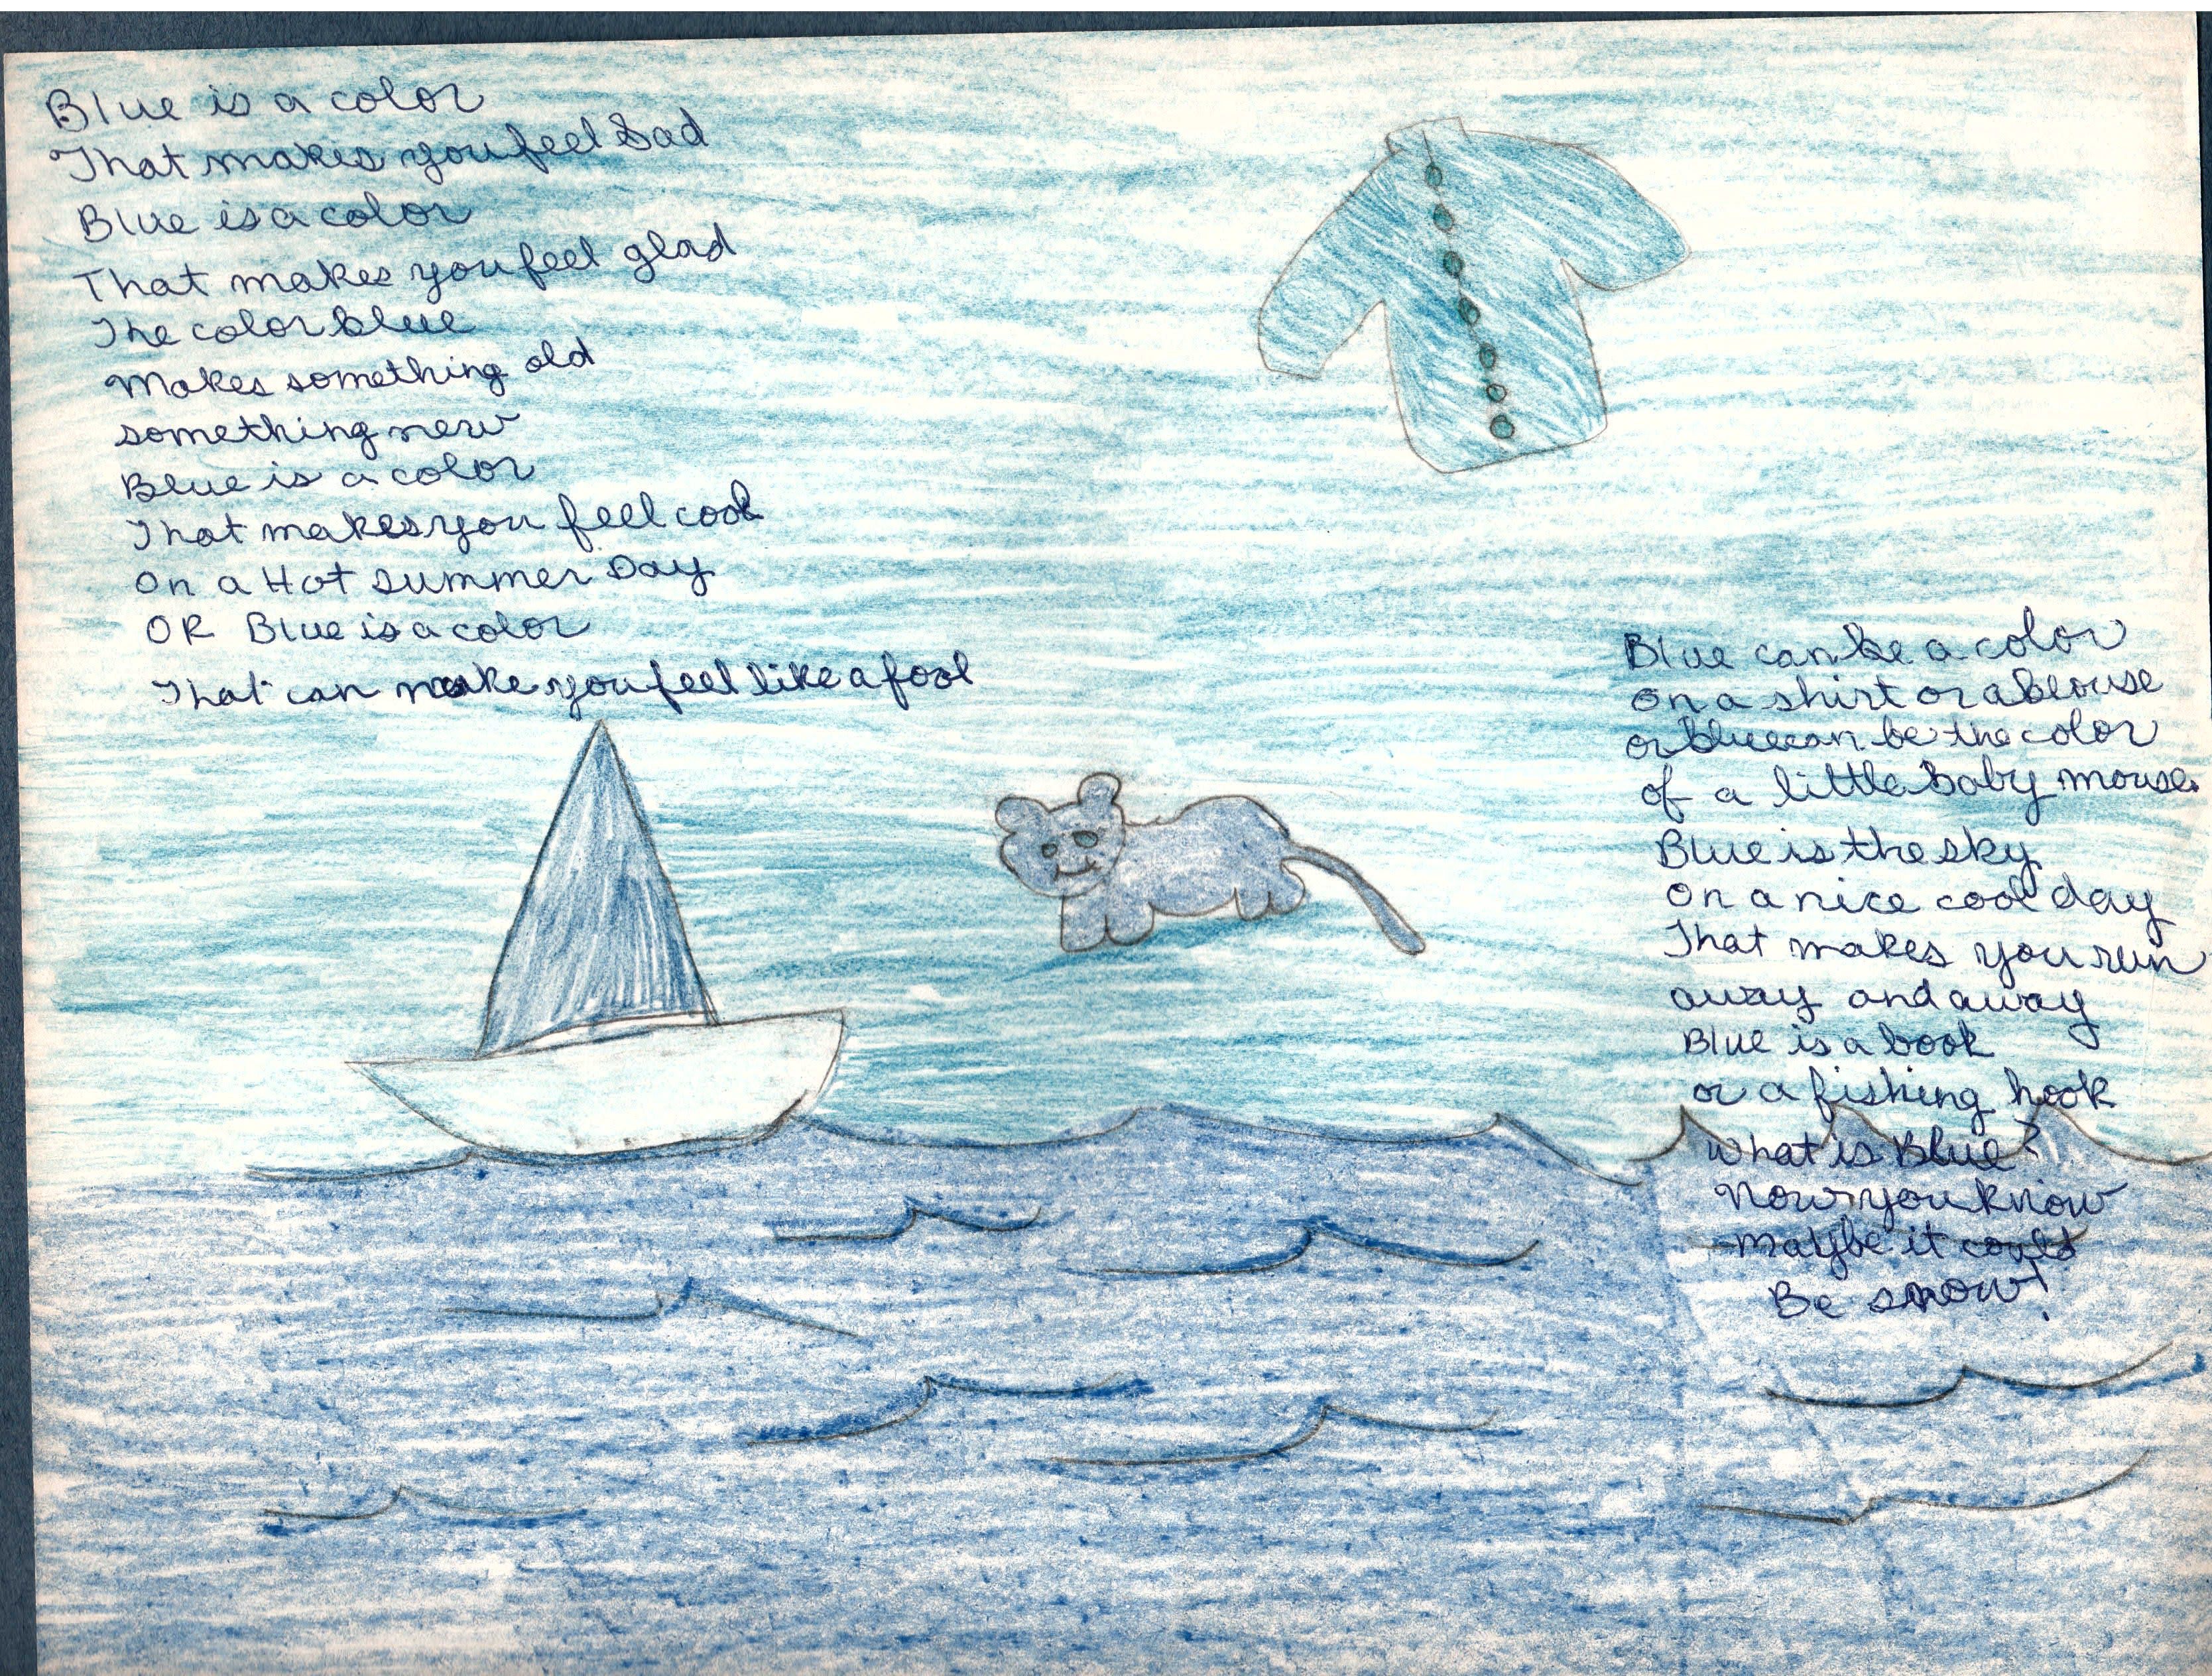 Blue is a color
That makes you feel Sad
Blue is a color
That makes you feel glad
The color blue
Makes something old
something new
Blue is a color
That makes you feel cool
On a Hot summer Day
OR Blue is a color
That can make you feel like a fool
Blue can be a color
on a shirt or a blouse
or blue can be the color
of a little baby mouse.
Blue is the sky
On a nice cool day
That makes you run
away and away
Blue is a book
or a fishing hook
What is Blue?
Now you know
maybe it could
Be snow!